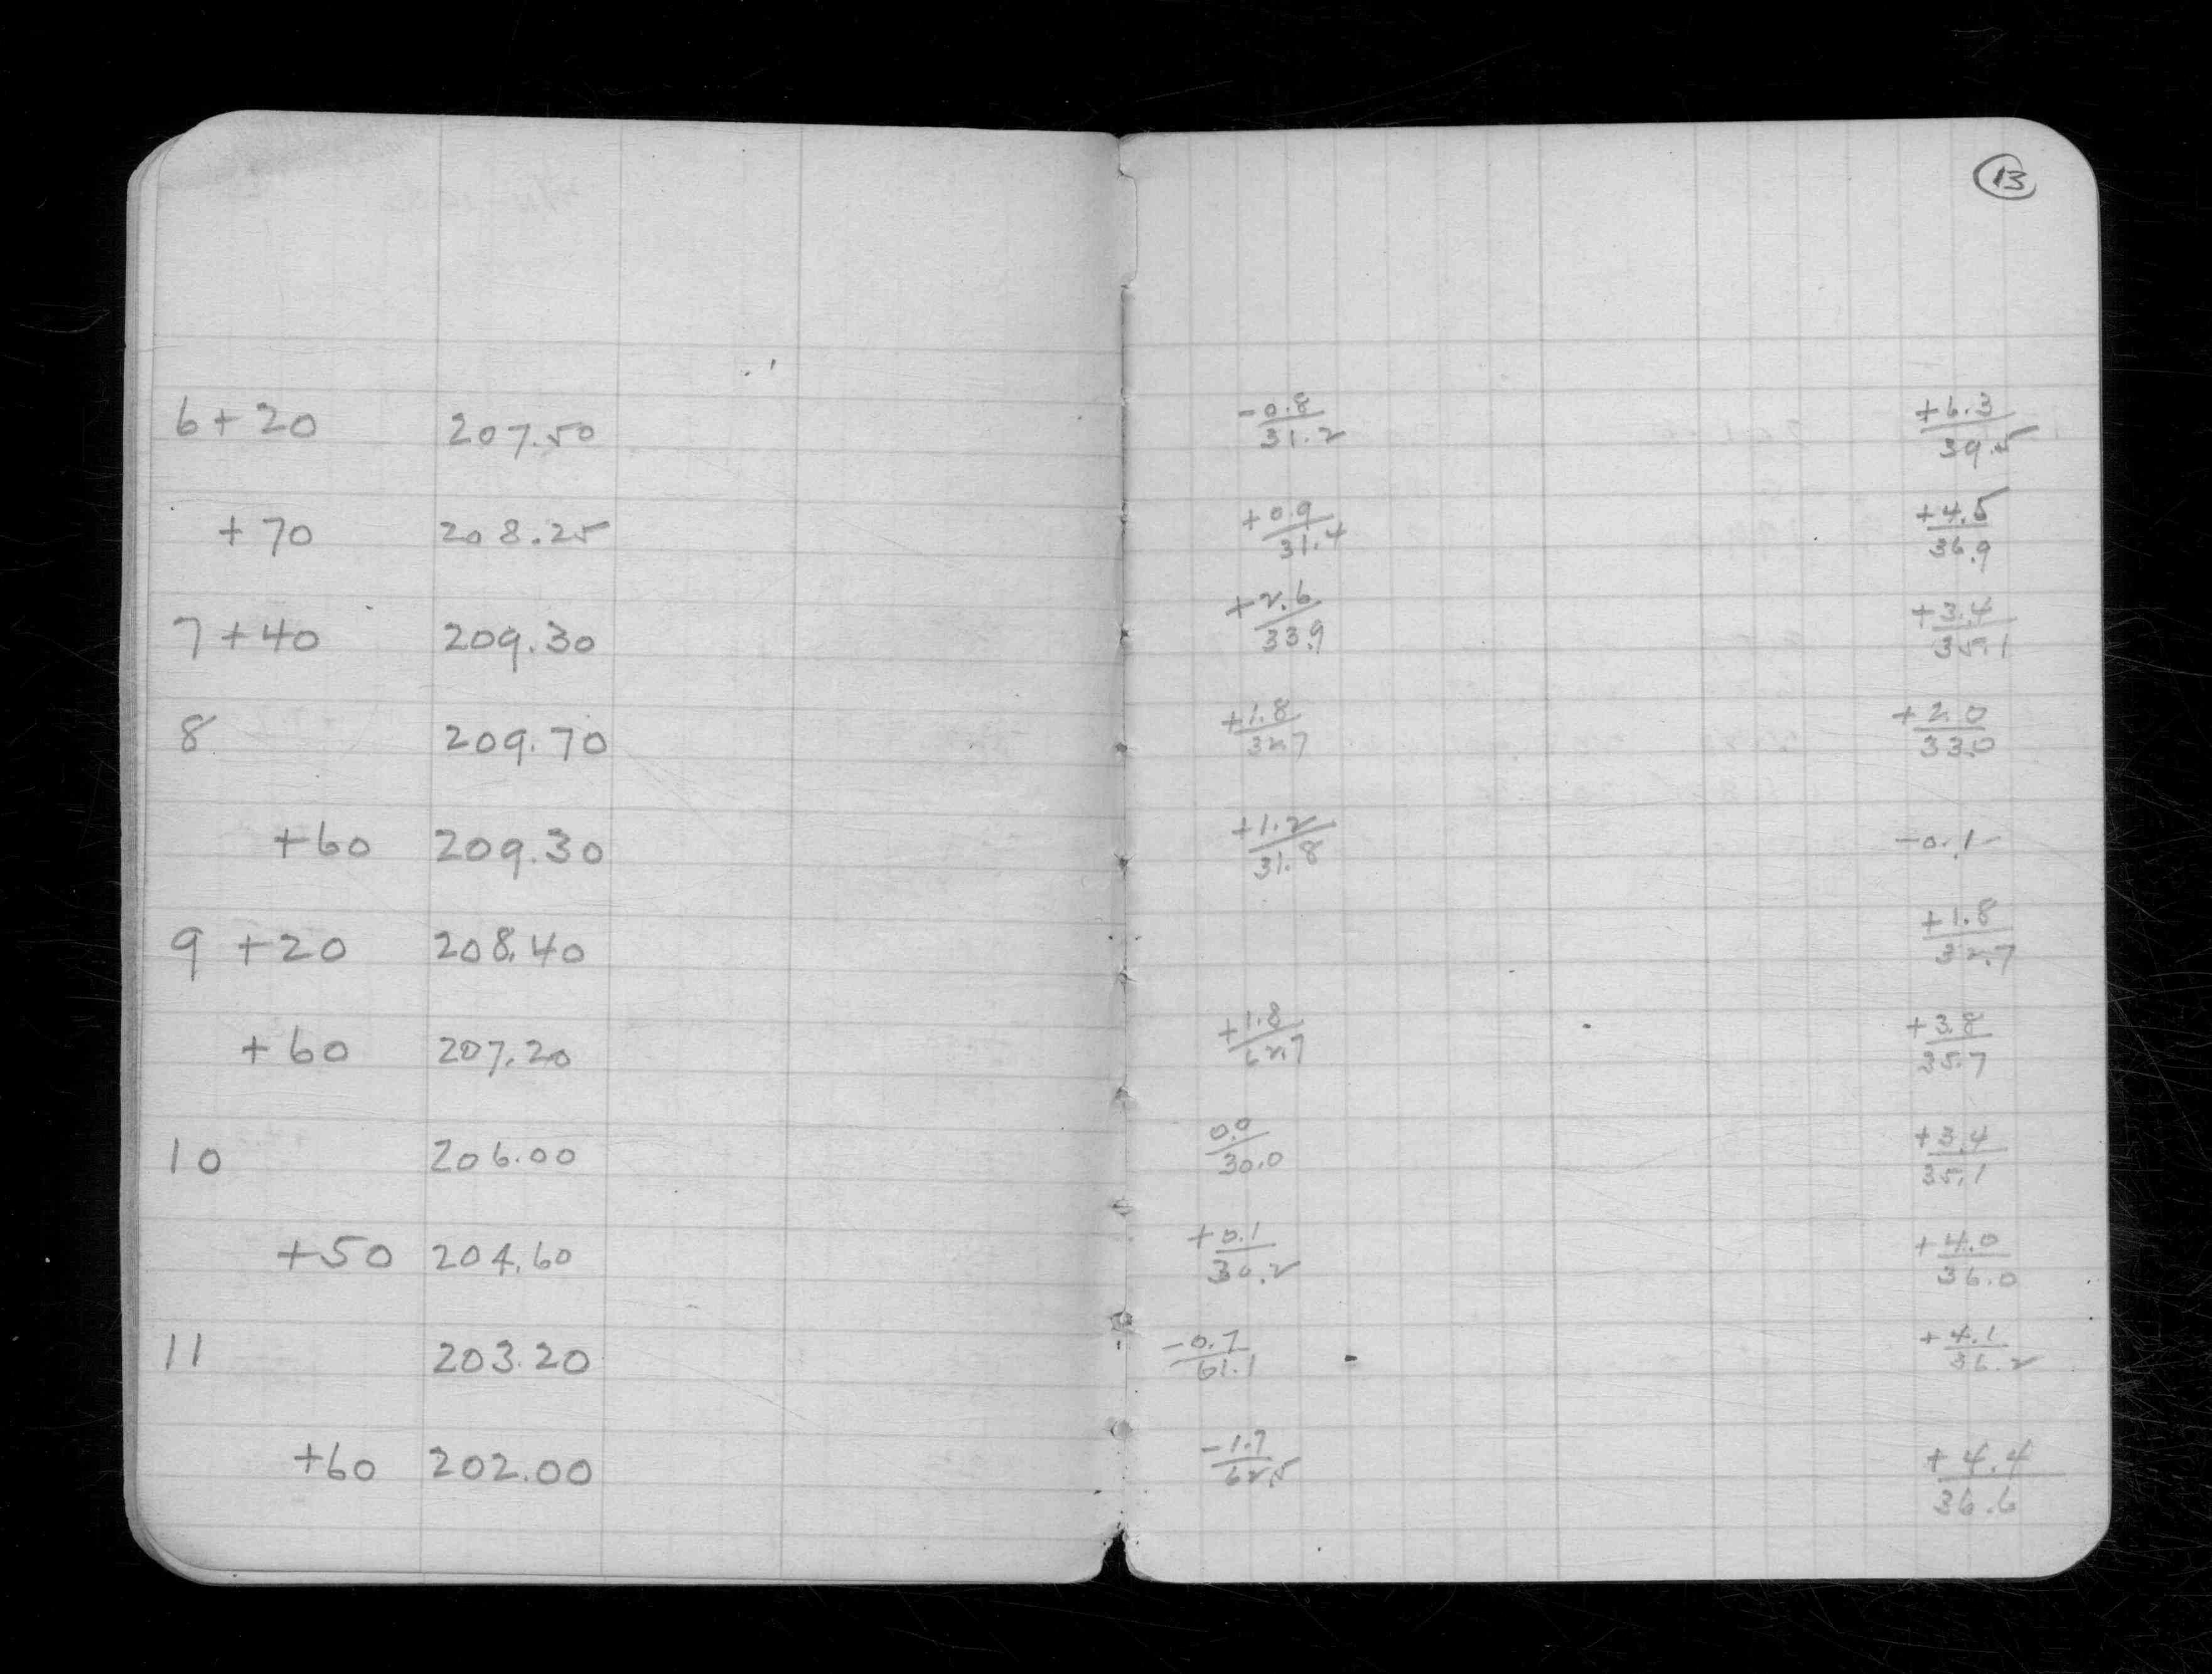 13
6+20 207.50 -0.8/31.2 +6.3/39.5
+70 208.25 +0.9/31.4 +4.5/36.9
7+40 209.30 +2.6/33.9 +3.4/35.1
8 209.70 +1.8/32.7 +2.0/33.0
+60 209.30 +1.2/31.8 -0.1-
9 +20 208.40 +1.8/32.7
+60 207.20 +1.8/62.7 +3.8/35.7
10 206.00 0.0/30.0 +3.4/35.1
+50 204.60 +0.1/30.2 +4.0/36.0
11 203.20 -0.7/61.1 +4.1/36.2
+60 202.00 -1.7/62.5 +4.4/36.6